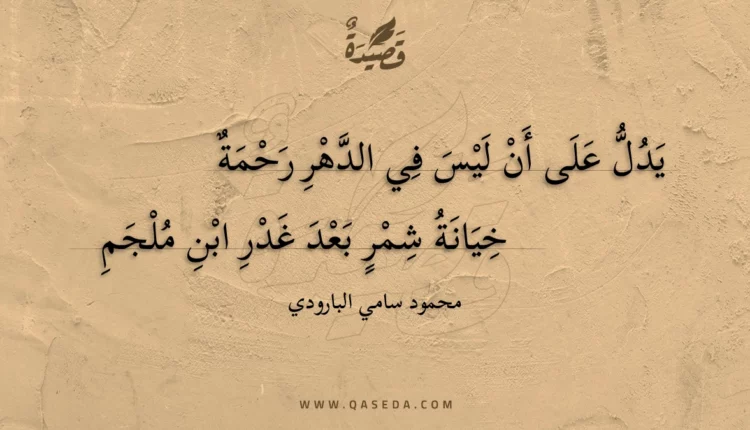 قَصِيدَةٌ
يَدُلُّ عَلَى أَنْ لَيْسَ فِي الدَّهْرِ رَحْمَةٌ
خِيَانَةُ شِمْرٍ بَعْدَ غَدْرِ ابْنِ مُلْجَمِ
محمود سامي البارودي
WWW.QASEDA.COM